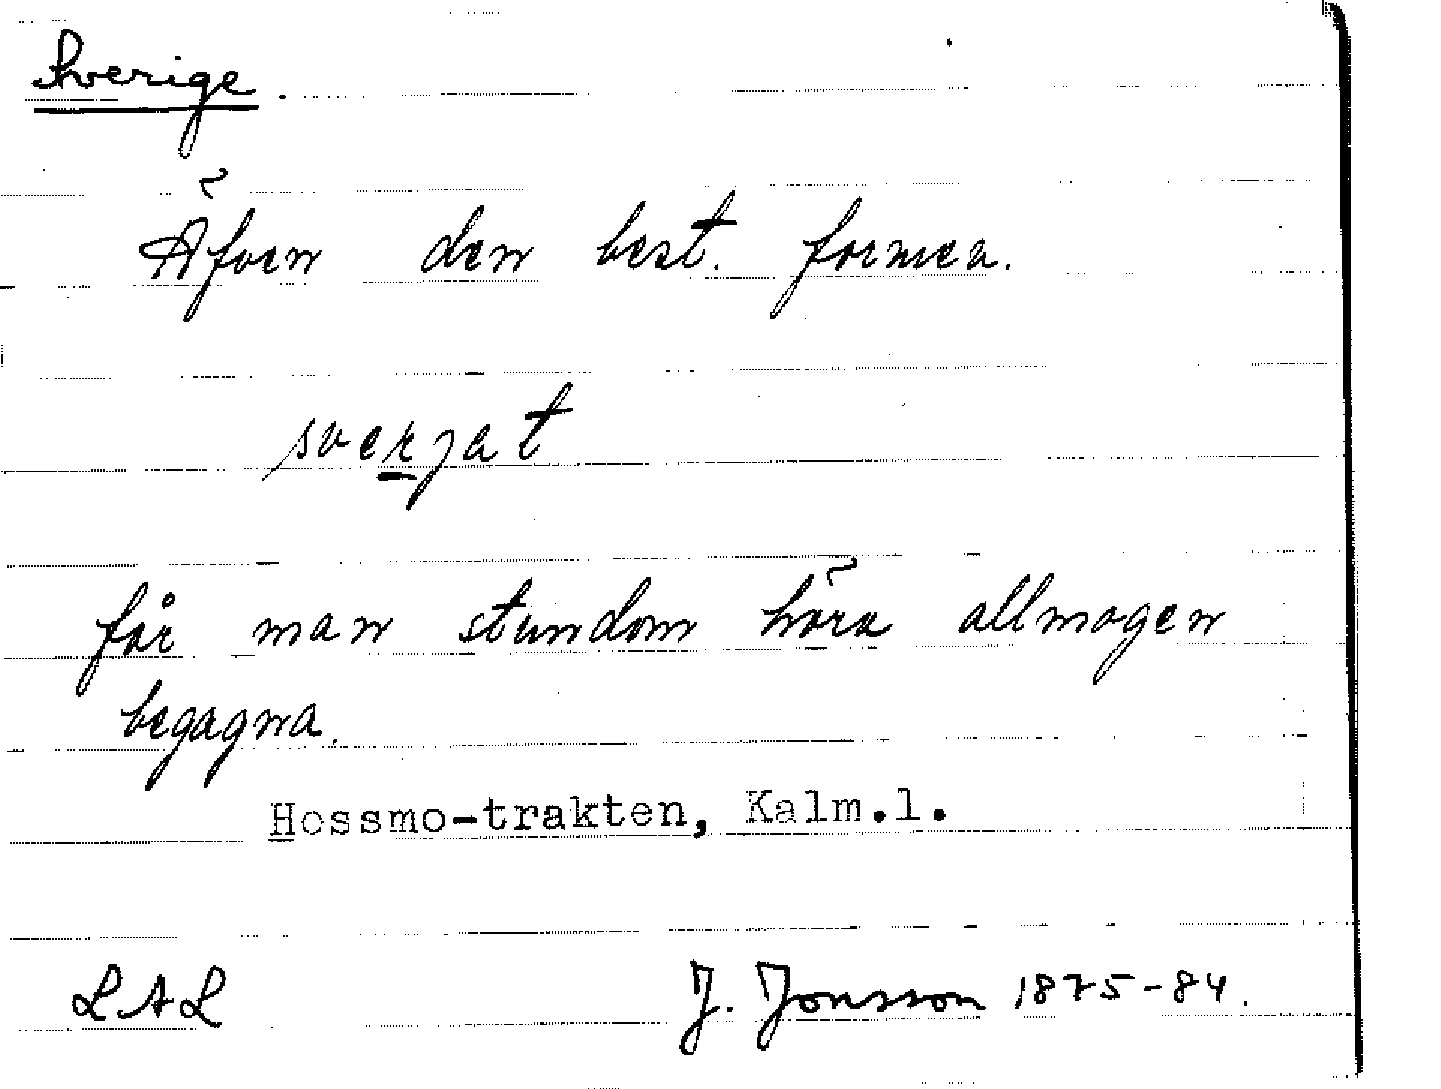 Sverige.
Äfven den best. formen.
sverjet
får man stundom höra allmogen
begagna.
Hossmo-trakten, Kalm.l.
LAL J. Jonsson 1875-84.